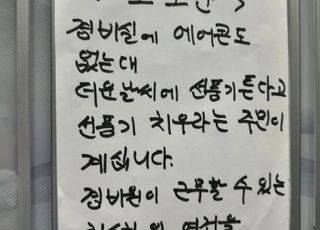 경비실에 에어콘도
없는대
더운날씨에 선풍기튼다고
선풍기 치우라는 주민이
계십니다.
경비원이 근무할 수 있는